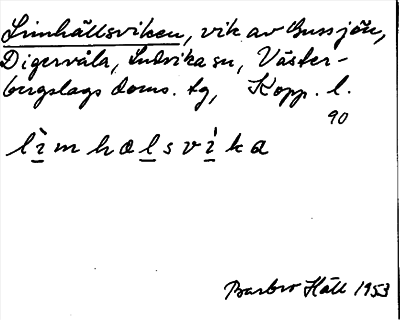 Limhällsviken, vik av Bussjön,
Digervåla, Ludvika sn, Väster-
bergslags doms. tg, Kopp. l.
90
lìmhalsvíka
Barbro Häll 1953